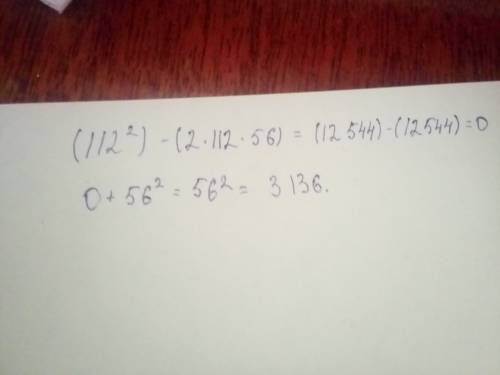 (112²) - (2·112·56) = (12 544) - (12544) = 0
0 + 56² = 56² = 3 136.